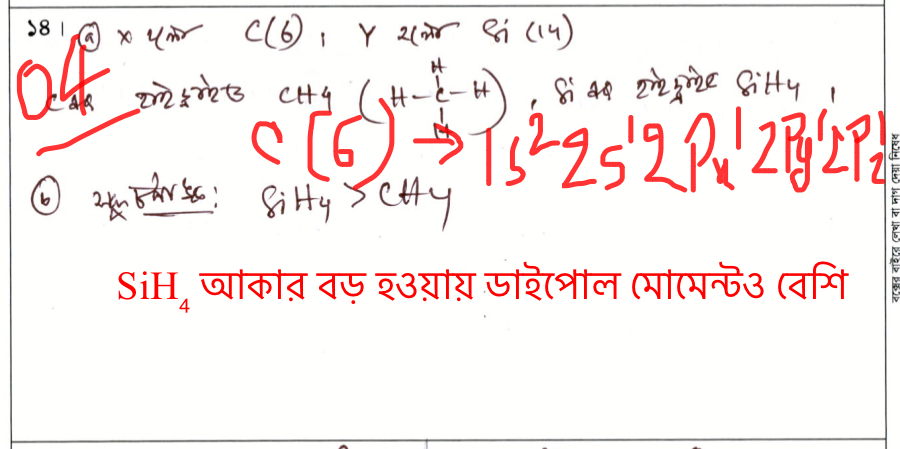 ১৪। (a) X হলো C(6), Y হলো Si (14)
04
C এর হাইড্রাইড CH4 (H-C-H), Si এর হাইড্রাইড SiH4,
H
H
C (6) → 1s² 2s¹ 2Px¹ 2Py¹ 2Pz¹
(b) : SiH4 > CH4
SiH4 আকার বড় হওয়ায় ডাইপোল মোমেন্টও বেশি
বক্সের বাইরে লেখা বা দাগ দেয়া নিষেধ